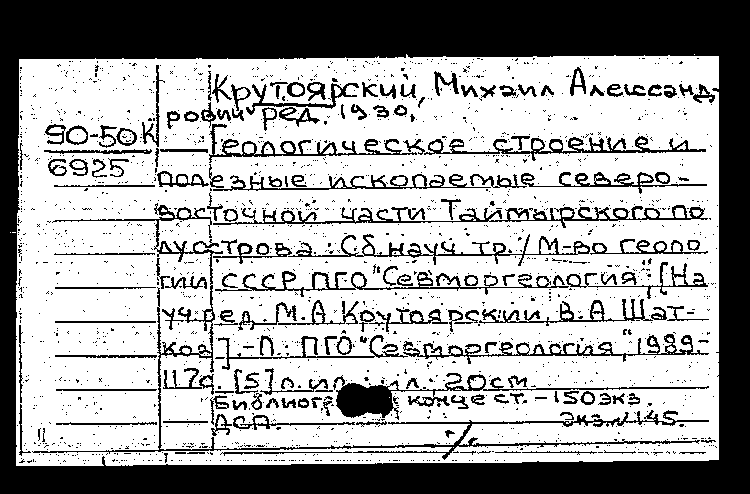 Крутоярский, Михаил Александ-
рович ред. 1930.
90-50К
6925
Геологическое строение и
полезные ископаемые северо-
восточной части Таймырского по
луострова : Сб. науч. тр. / М-во геоло
гии СССР, ПГО "Севморгеология"; [На
уч. ред. М.А. Крутоярский, В.А Шат-
ков]. - Л. : ПГО "Севморгеология", 1989.-
117с. [5] л. ил. : ил. ; 20см
Библиогр конце ст. - 150экз.
ДСП. Экз. N 145.